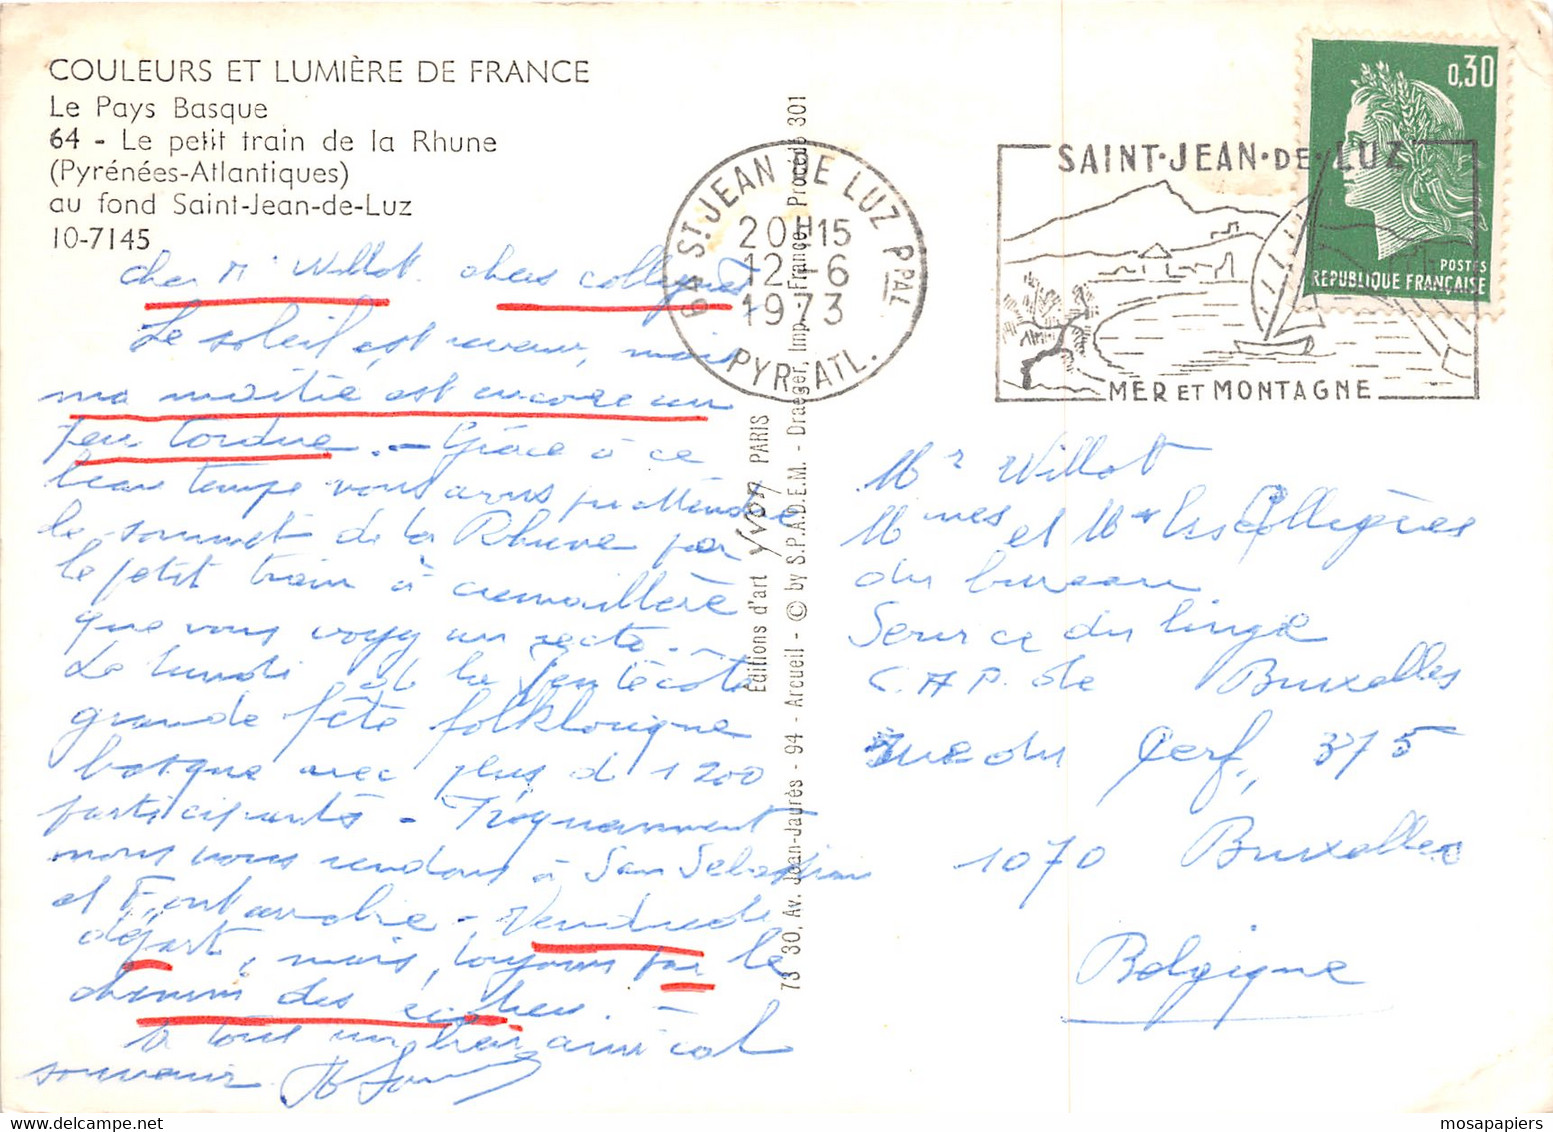 COULEURS ET LUMIÈRE DE FRANCE
Le Pays Basque
64 - Le petit train de la Rhune
(Pyrénées-Atlantiques)
au fond Saint-Jean-de-Luz
10-7145
Cher Mr Willot. chers collègues,
Le soleil est revenu, mais
ma moitié est encore un
peu tordue. - Grâce à ce
beau temps nous avons pu atteindre
le sommet de la Rhune par
le petit train à cremaillère
que vous voyez au recto. -
Le lundi de la Pentecôte
grande fête folklorique
basque avec plus de 1200
participants -
nous nous rendons à San Sebastian
et Fontarabie - Vendredi
départ, mais, toujours par le
chemin des écoliers. -
à tous un bien amical
souvenir
Editions d'art Yvon PARIS
73 30, Av. Jean-Jaurès - 94 - Arcueil - © by S.P.A.D.E.M. - Draeger, Imp. - France - Procédé 301
64 ST JEAN DE LUZ PPAL
20H15
12-6
1973
PYR-ATL.
SAINT·JEAN·DE·LUZ
MER ET MONTAGNE
0,30
POSTES
REPUBLIQUE FRANÇAISE
Mr Willot
Mmes et Melles Collègues
du bureau
Service du linge
C.A.P. de Bruxelles
rue du Cerf, 375
1070 Bruxelles
Belgique
mosapapiers